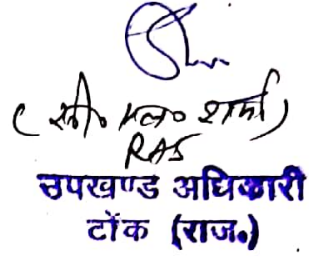 ( सी० एल० शर्मा )
RAS
उपखण्ड अधिकारी
टोंक (राज.)